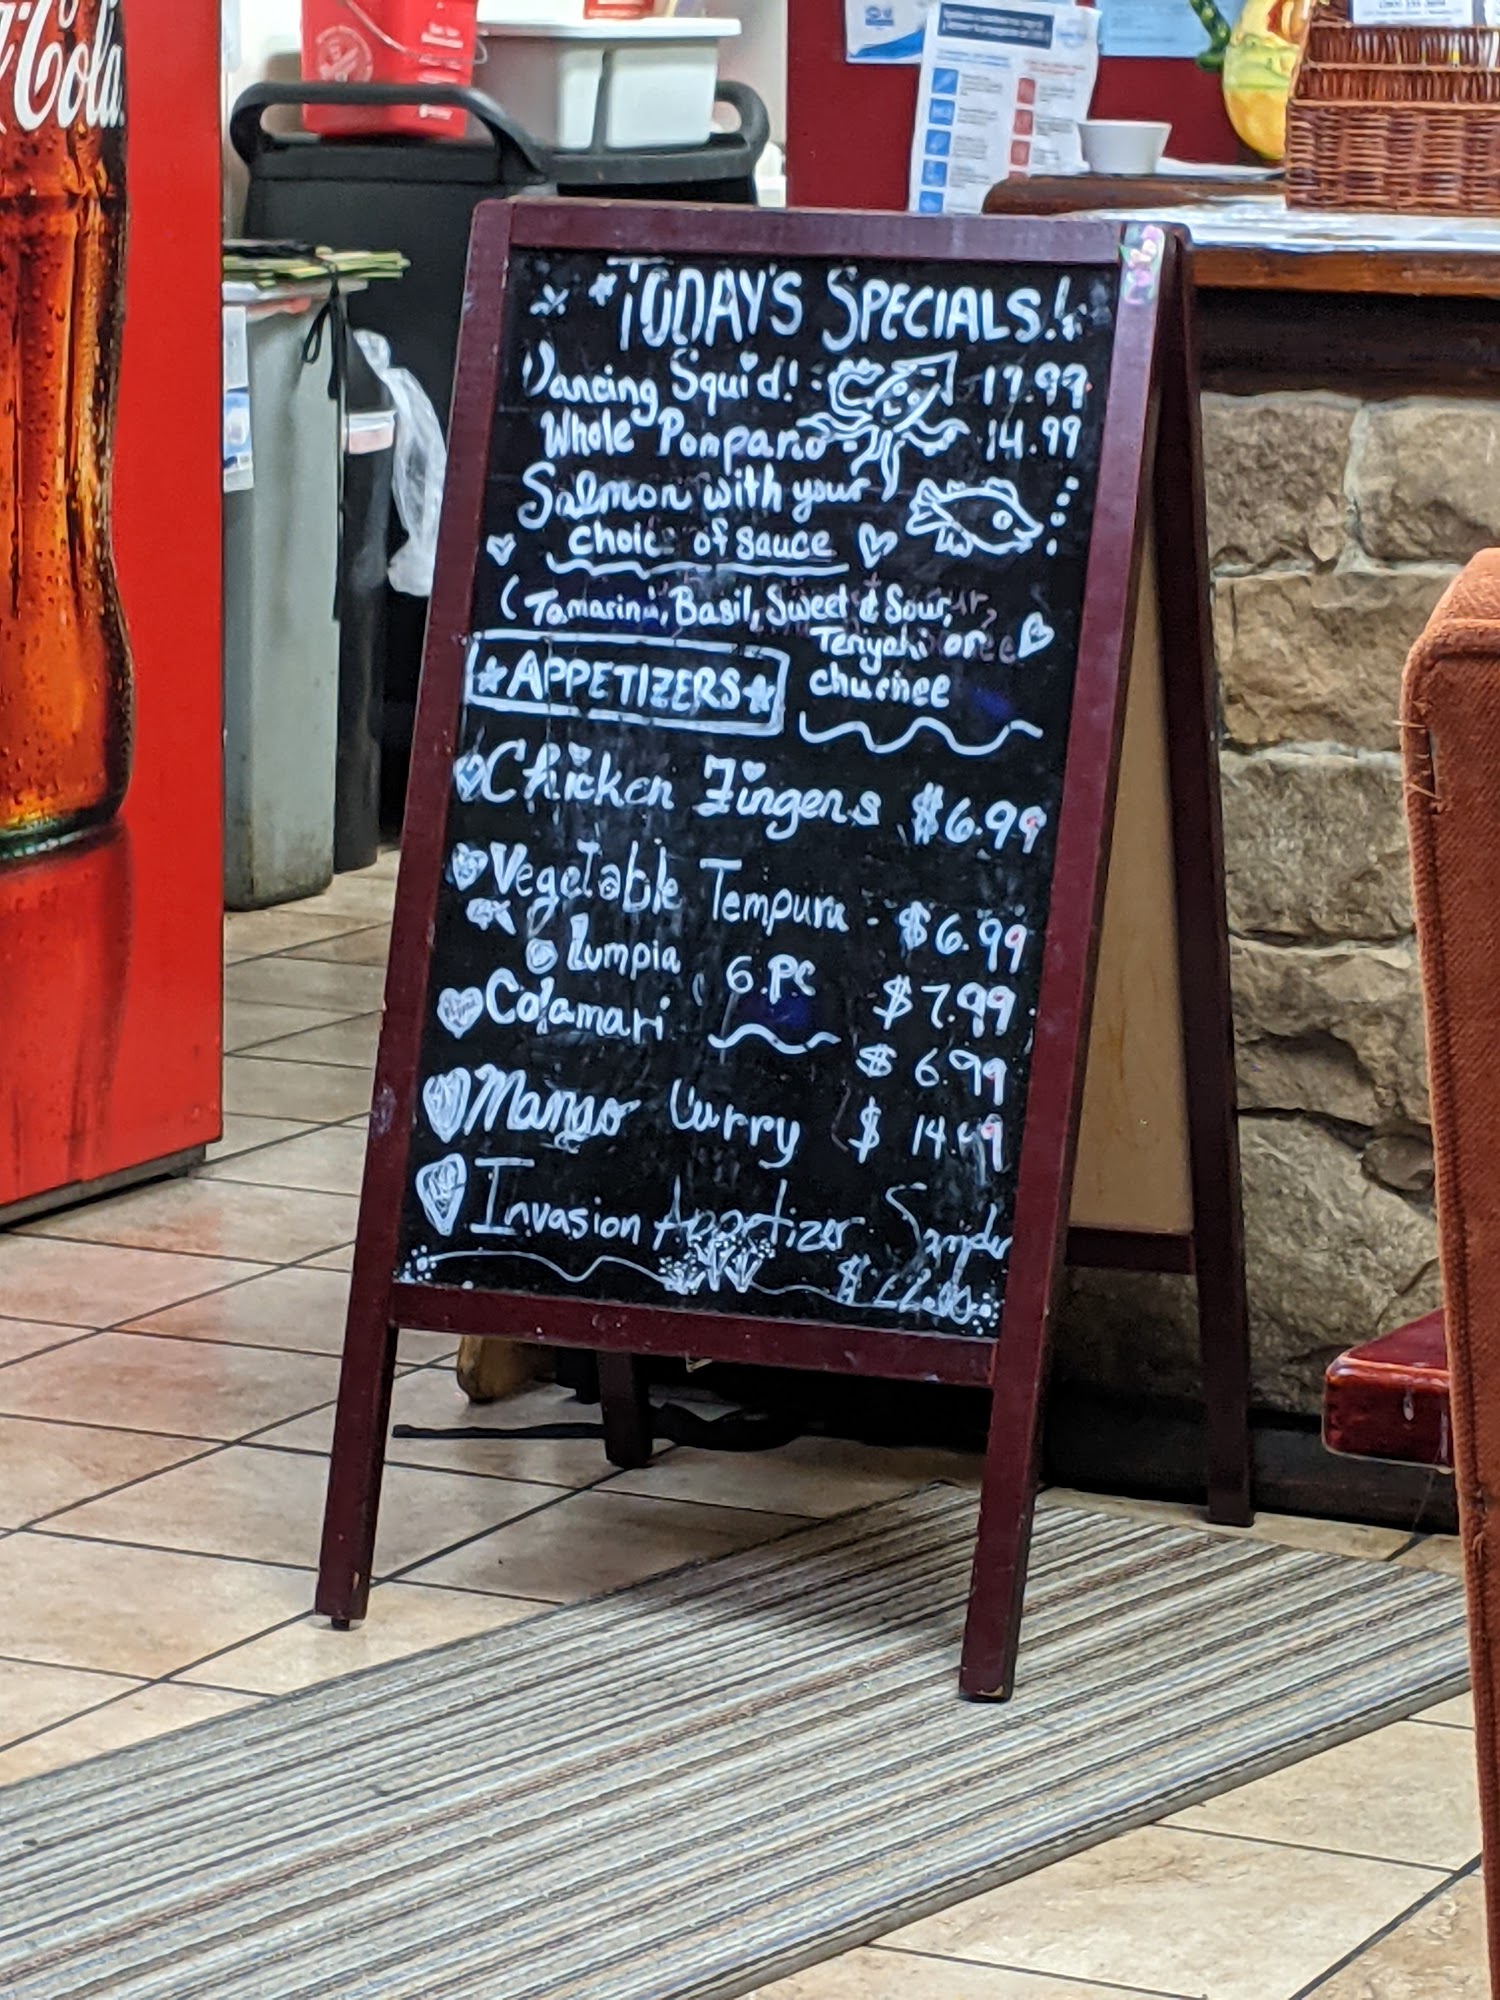 Coca-Cola
*TODAY'S SPECIALS!
Dancing Squid! 17.99
Whole Pompano 14.99
Salmon with your
choice of sauce
(Tamarind, Basil, Sweet & Sour,
Teriyaki or
chuchee
*APPETIZERS*
Chicken Fingers $6.99
Vegetable Tempura $6.99
Lumpia 6.PC $7.99
Calamari $6.99
Mango Curry $14.99
Invasion Appetizer